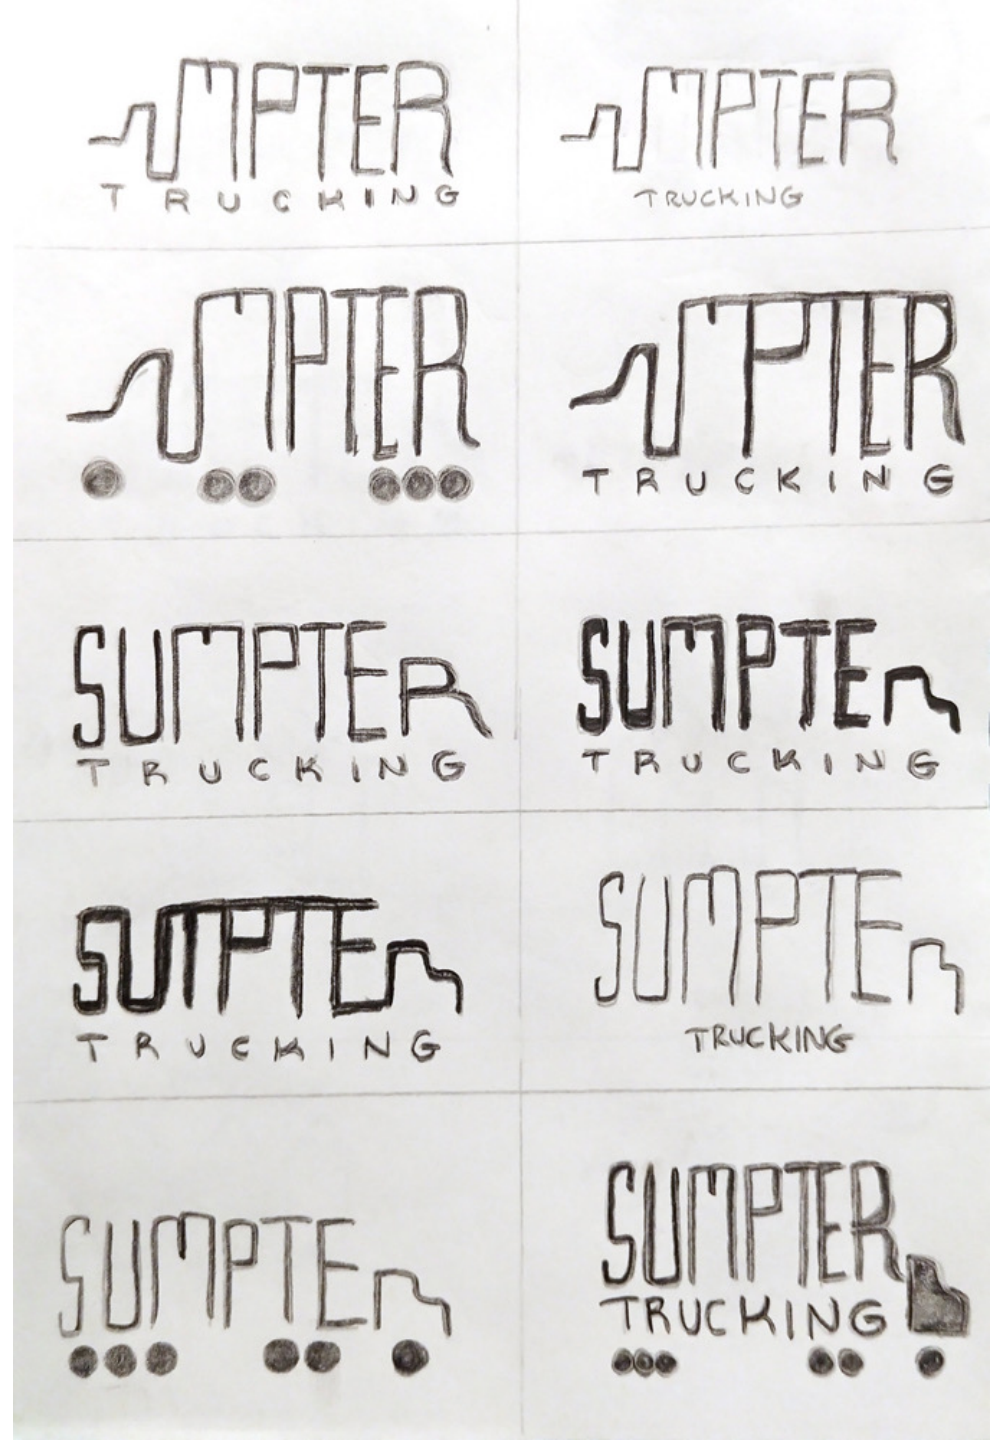 SUMPTER
TRUCKING
SUMPTER
TRUCKING
SUMPTER
SUMPTER
TRUCKING
SUMPTER
TRUCKING
SUMPTER
TRUCKING
SUMPTER
TRUCKING
SUMPTER
TRUCKING
SUMPTER
SUMPTER
TRUCKING